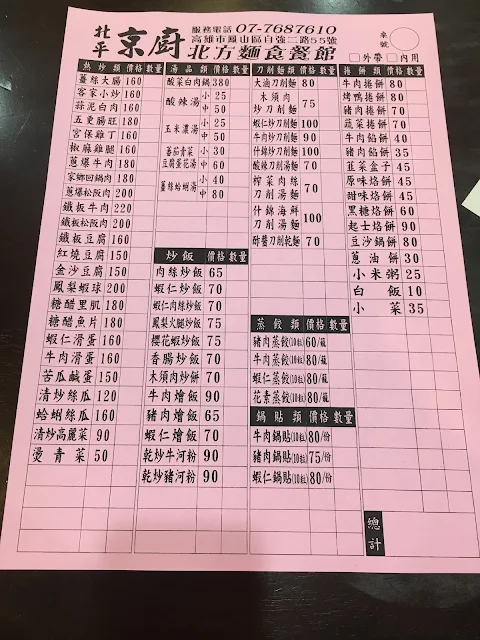 北平 京廚
服務電話 07-7687610
高雄市鳳山區自強二路55號
北方麵食餐館
桌號
□外帶 □內用
熱炒類 價格 數量
薑絲大腸 160
客家小炒 160
蒜泥白肉 160
五更腸旺 180
宮保雞丁 160
椒麻雞腿 160
蔥爆牛肉 180
家鄉回鍋肉 180
蔥爆松阪肉 200
鐵板牛肉 220
鐵板松阪肉 200
鐵板豆腐 160
紅燒豆腐 150
金沙豆腐 150
鳳梨蝦球 200
糖醋里肌 180
糖醋魚片 180
蝦仁滑蛋 160
牛肉滑蛋 160
苦瓜鹹蛋 150
清炒絲瓜 120
蛤蜊絲瓜 160
清炒高麗菜 90
燙青菜 50
湯品類 價格 數量
酸菜白肉鍋 380
酸辣湯 小 25
中 50
玉米濃湯 小 25
中 50
蕃茄青菜豆腐蛋花湯 小 30
中 60
薑絲蛤蜊湯 小 40
中 80
炒飯 價格 數量
肉絲炒飯 65
蝦仁炒飯 70
蝦仁肉絲炒飯 70
鳳梨火腿炒飯 75
櫻花蝦炒飯 75
香腸炒飯 70
木須肉炒餅 70
牛肉燴飯 90
豬肉燴飯 65
蝦仁燴飯 70
乾炒牛河粉 90
乾炒豬河粉 90
刀削麵類 價格 數量
大滷刀削麵 80
木須肉炒刀削麵 75
蝦仁炒刀削麵 100
牛肉炒刀削麵 90
什錦炒刀削麵 100
酸辣刀削湯麵 70
榨菜肉絲刀削湯麵 70
什錦海鮮刀削湯麵 100
酢醬刀削乾麵 70
蒸餃類 價格 數量
豬肉蒸餃(10粒) 60/籠
牛肉蒸餃(10粒) 80/籠
蝦仁蒸餃(10粒) 80/籠
花素蒸餃(10粒) 80/籠
鍋貼類 價格 數量
牛肉鍋貼(10粒) 80/份
豬肉鍋貼(10粒) 75/份
蝦仁鍋貼(10粒) 80/份
捲餅類 價格 數量
牛肉捲餅 80
烤鴨捲餅 80
豬肉捲餅 70
蔬菜捲餅 70
牛肉餡餅 40
豬肉餡餅 35
韮菜盒子 45
原味烙餅 45
甜味烙餅 45
黑糖烙餅 60
起士烙餅 90
豆沙鍋餅 80
蔥油餅 30
小米粥 25
白飯 10
小菜 35
總計